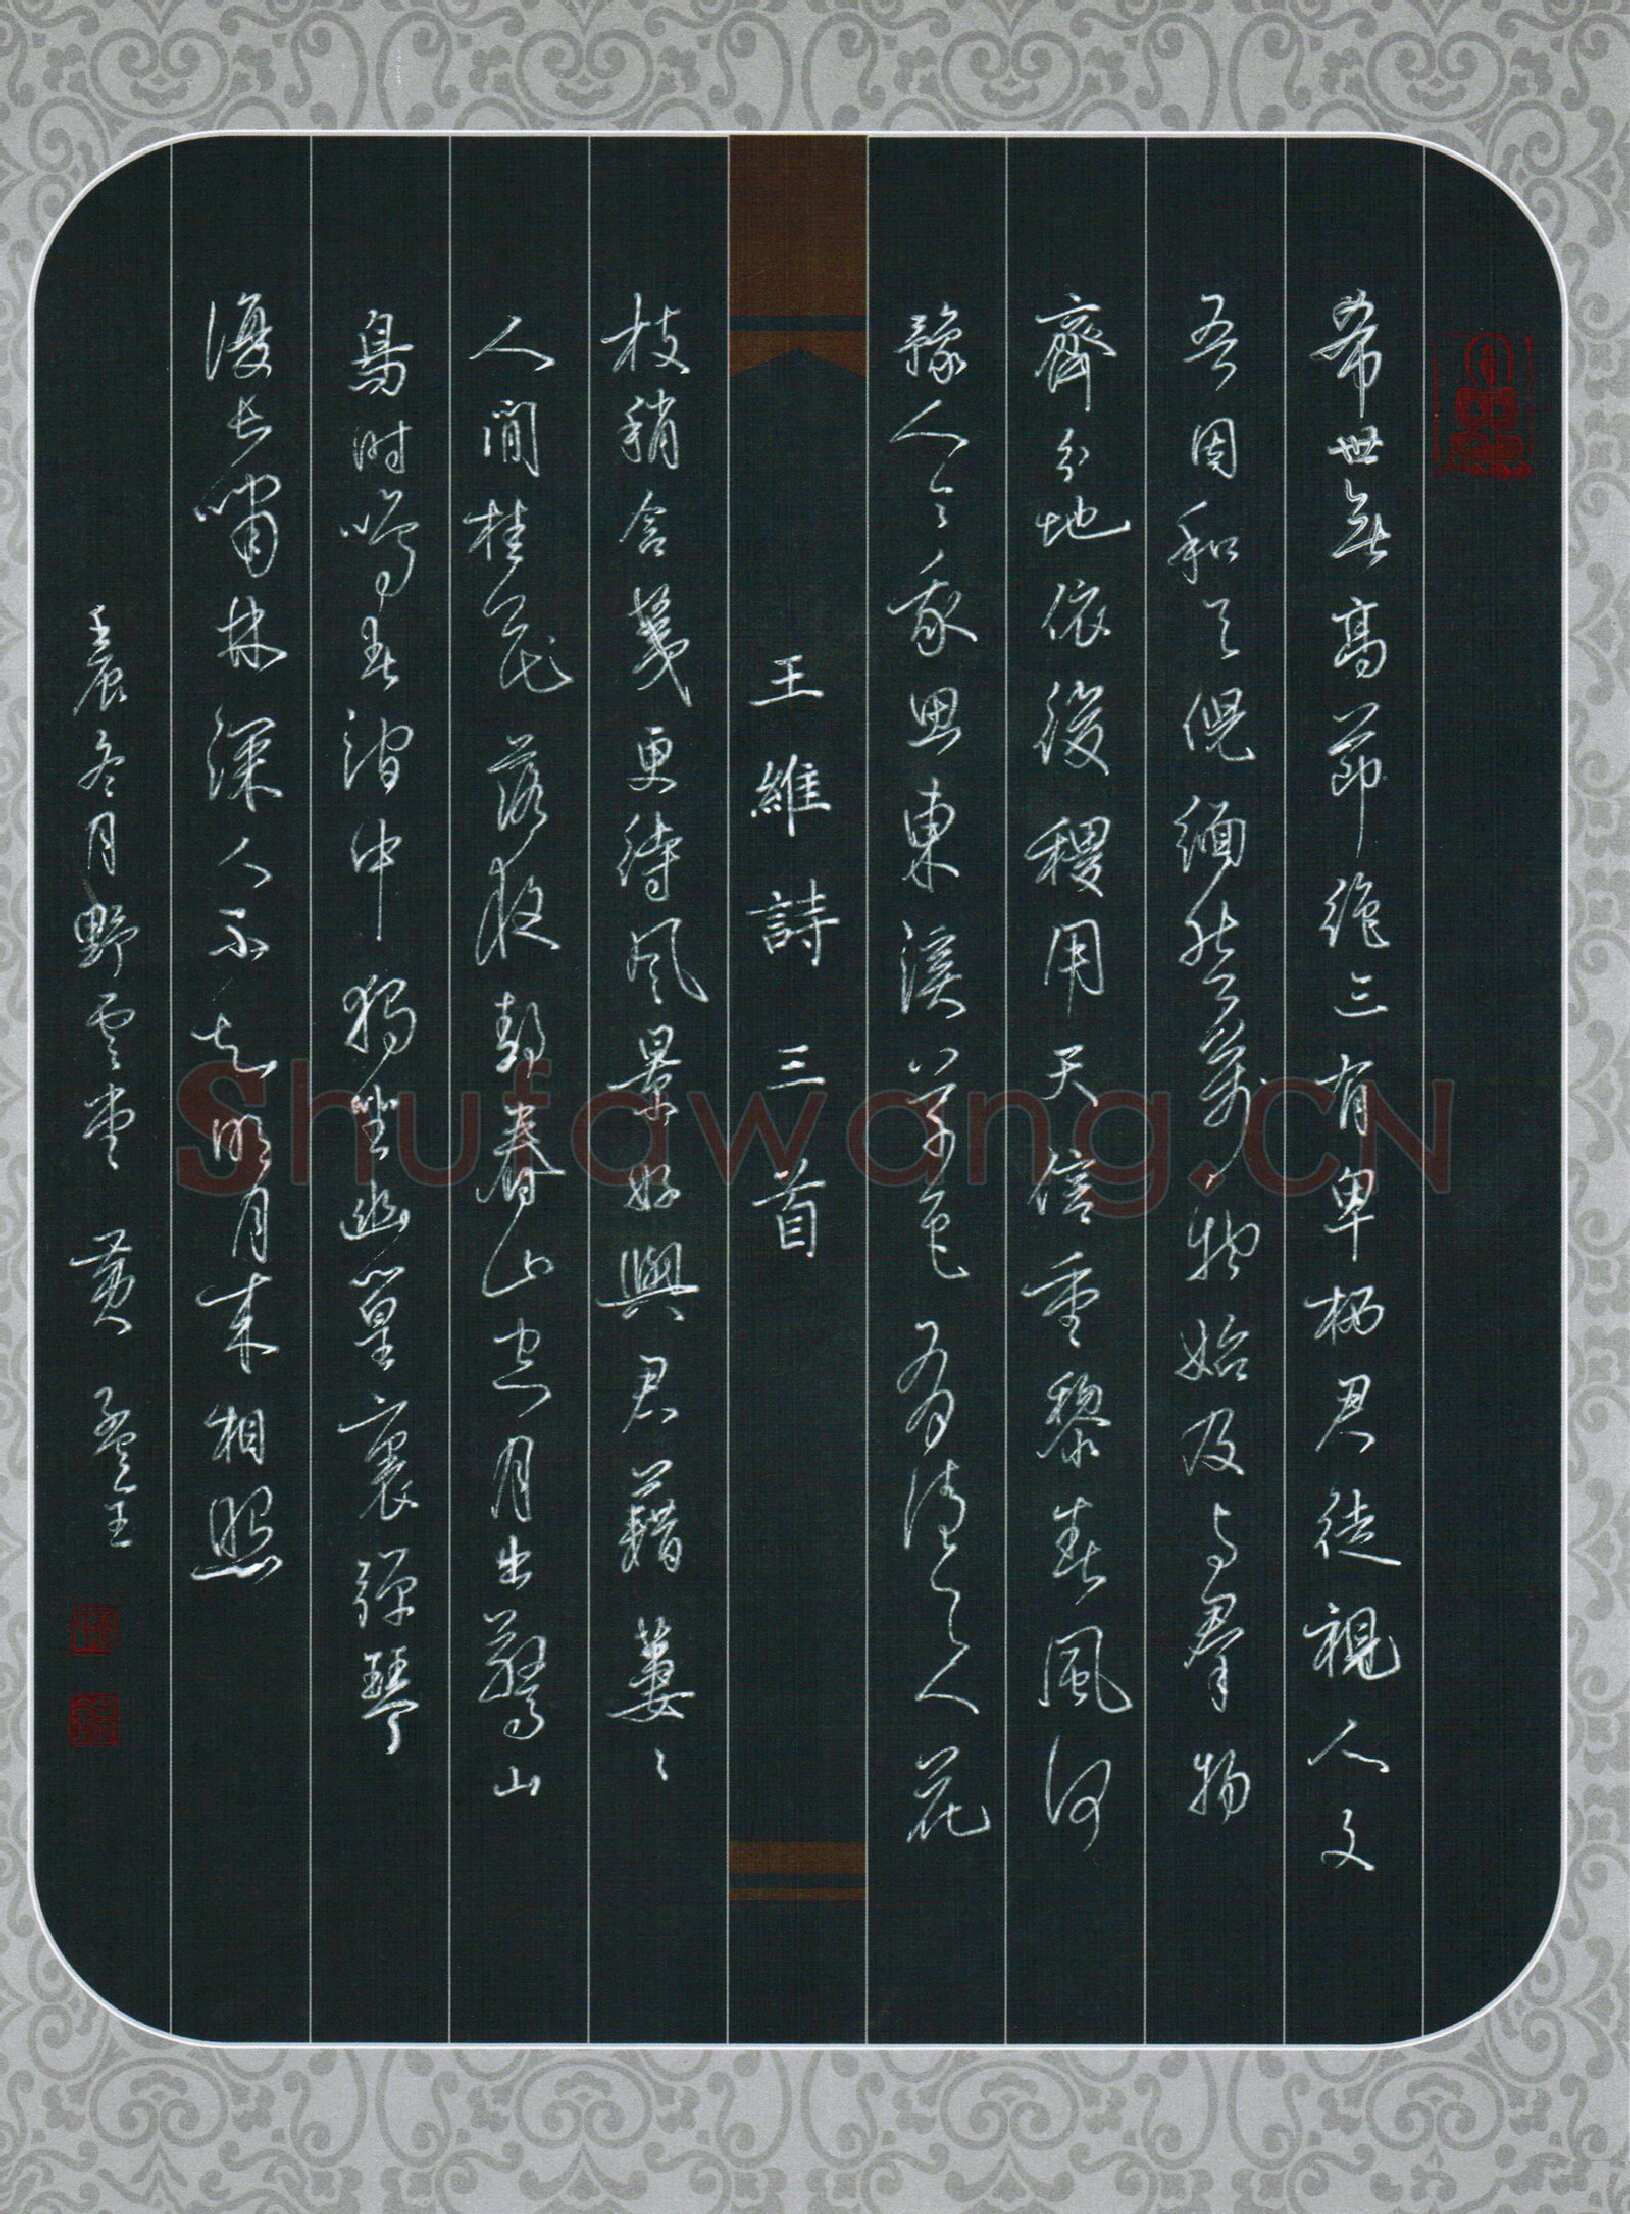 希世無高節絶迹有卑栖君徒視人文
吾固和天倪緬然萬物始及与羣物
齊分地依後稷用天信重黎春風何
豫人令我思東溪草色有 花
王維詩三首
枝稍含荑更待风景好與君藉萋々
人閒桂花落夜静春山空月出驚山
鳥时鳴春澗中獨坐幽篁裏弹琴
復長嘯林深人不知明月来相照
壬辰冬月野雲堂 黄
Shufawang.CN